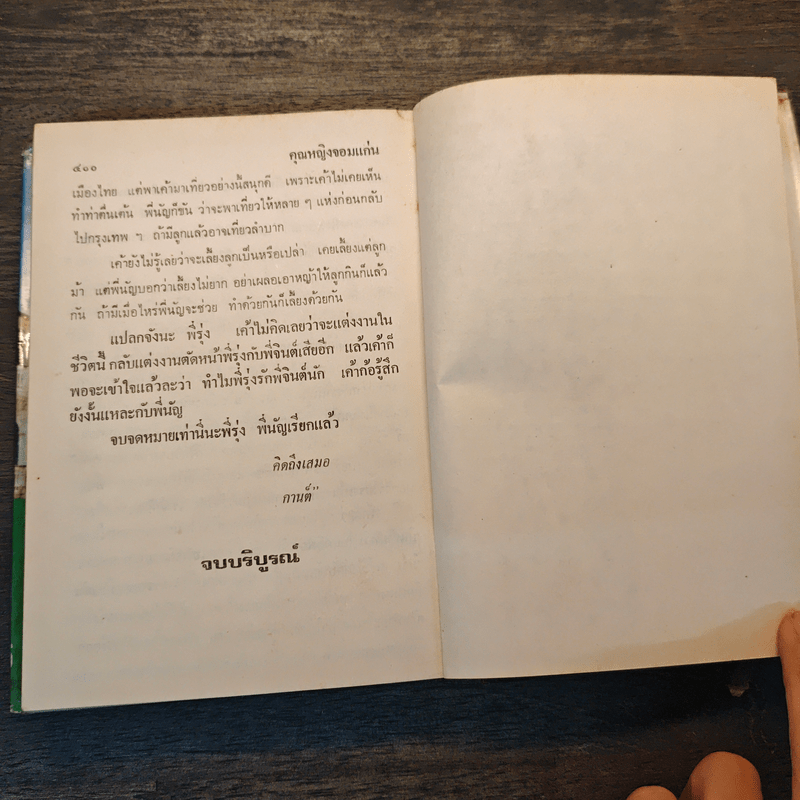 ๔๑๐
คุณหญิงจอมแก่น
เมืองไทย แต่พาเค้ามาเที่ยวอย่างนี้สนุกดี เพราะเค้าไม่เคยเห็น
ทำท่าตื่นเต้น พี่นัญก็ขัน ว่าจะพาเที่ยวให้หลาย ๆ แห่งก่อนกลับ
ไปกรุงเทพ ๆ ถ้ามีลูกแล้วอาจเที่ยวลำบาก
เค้ายังไม่รู้เลยว่าจะเลี้ยงลูกเป็นหรือเปล่า เคยเลี้ยงแต่ลูก
ม้า แต่พี่นัญบอกว่าเลี้ยงไม่ยาก อย่าเผลอเอาหญ้าให้ลูกกินก็แล้ว
กัน ถ้ามีเมื่อไหร่พี่นัญจะช่วย ทำด้วยกันก็เลี้ยงด้วยกัน
แปลกจังนะ พี่รุ่ง เค้าไม่คิดเลยว่าจะแต่งงานใน
ชีวิตนี้ กลับแต่งงานตัดหน้าพี่รุ่งกับพี่จินต์เสียอีก แล้วเค้าก็
พอจะเข้าใจแล้วละว่า ทำไมพี่รุ่งรักพี่จินต์นัก เค้าก้อรู้สึก
ยังงั้นแหละกับพี่นัญ
จบจดหมายเท่านี้นะพี่รุ่ง พี่นัญเรียกแล้ว
คิดถึงเสมอ
กานต์"
จบบริบูรณ์